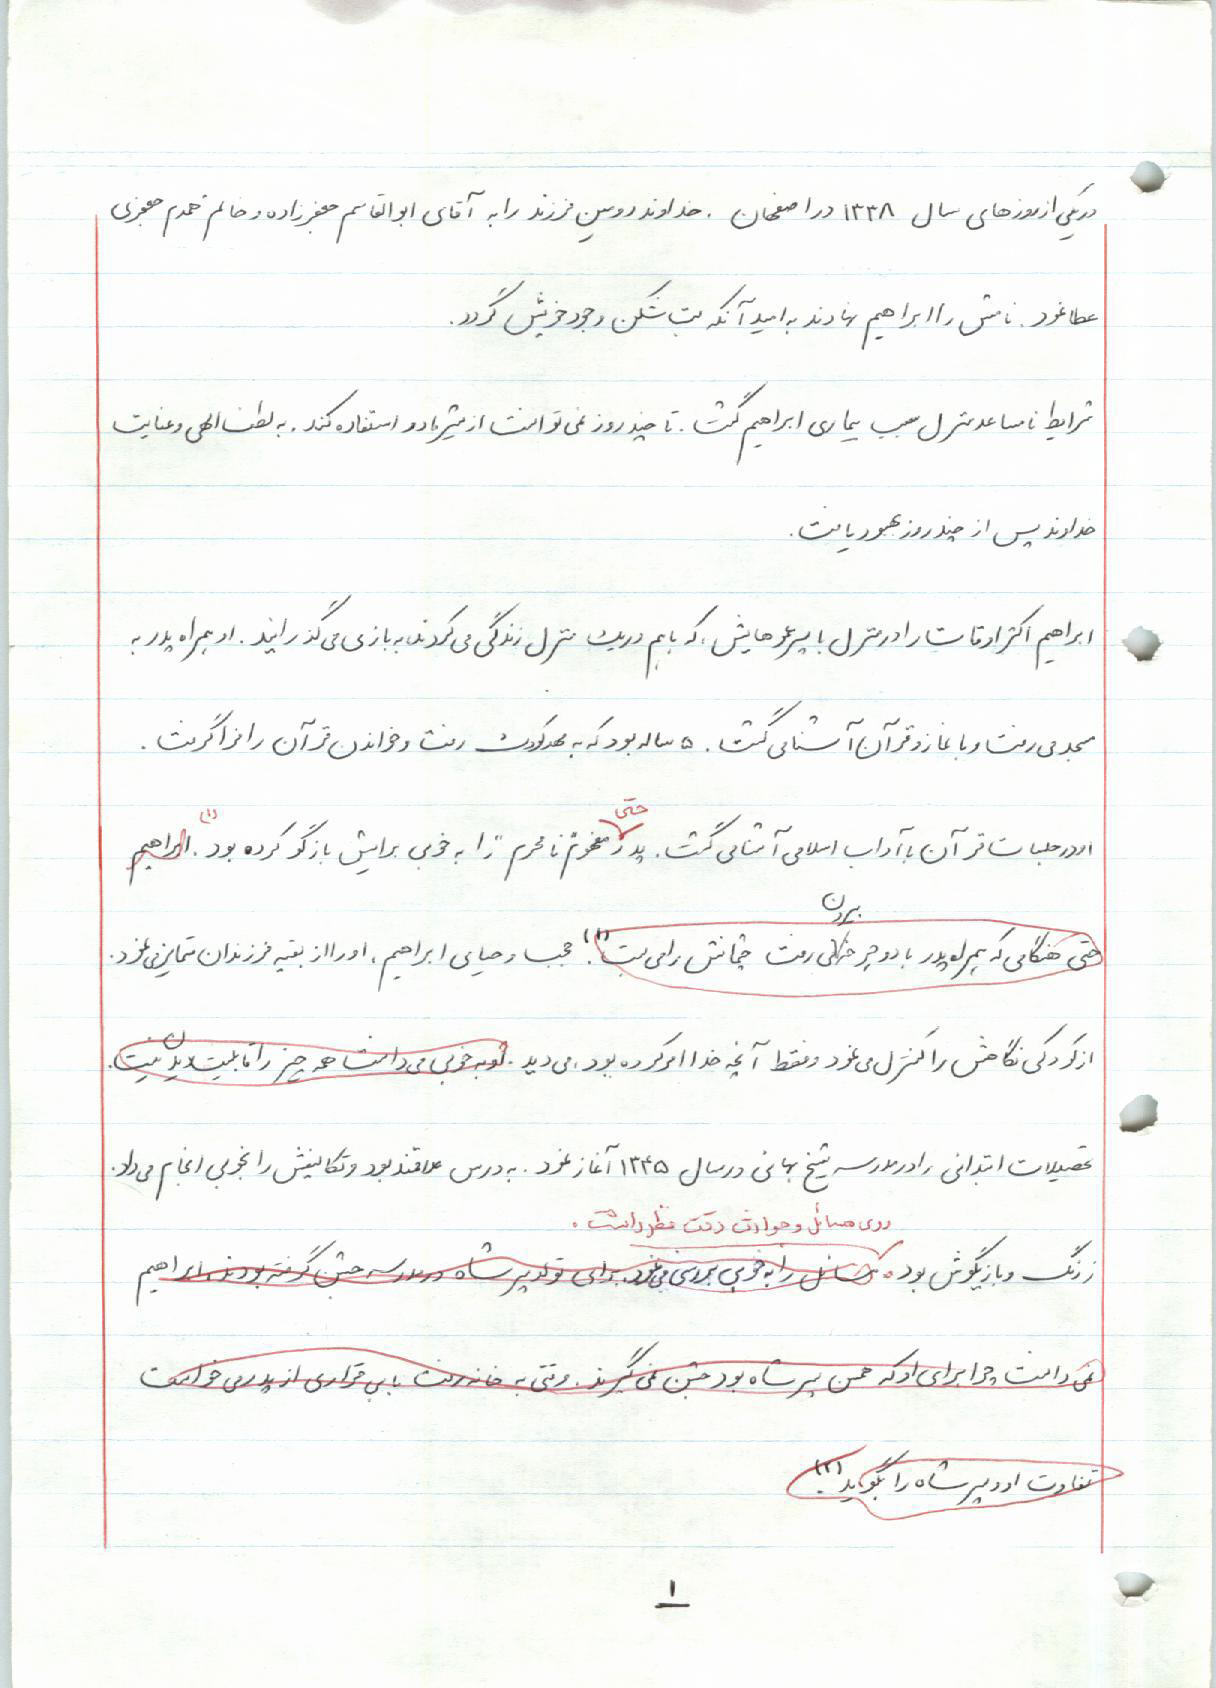 در یکی از روزهای سال ۱۳۳۸ در اصفهان . خداوند دومین فرزند را به آقای ابوالقاسم جعفرزاده و خانم
عطا نمود . نامش را ابراهیم نهادند به امید آنکه بت شکن وجود خویش گردد .
شرایط نامساعد منزل سبب بیماری ابراهیم گشت . تا چند روز نمی توانست از شیر مادر استفاده کند . به لطف الهی و عنایت
خداوند پس از چند روز بهبود یافت .
ابراهیم اکثر اوقات را در منزل با پسر عموهایش ، که باهم در یک منزل زندگی می کردند، به بازی می گذرانید . او همراه پدر به
مسجد می رفت و با نماز و قرآن آشنا می گشت . ۵ ساله بود که به مهدکودک رفت و خواندن قرآن را فرا گرفت .
حتی
او در جلسات قرآن با آداب اسلامی آشنا می گشت . پدر مفهوم "نامحرم" را به خوبی برایش بازگو کرده بود . (۱) ابراهیم
بیرون
حتی هنگامی که همراه پدر با دوچرخه می رفت چشمانش را می بست (۱) . حجب و حیای ابراهیم ، او را از بقیه فرزندان متمایز می نمود .
از کودکی نگاهش را کنترل می نمود و فقط آنچه خدا امر کرده بود ، می دید . او به خوبی می دانست همه چیز را قابلیت دیدن نیست .
تحصیلات ابتدائی را در مدرسه شیخ بهائی در سال ۱۳۴۵ آغاز نمود . به درس علاقمند بود و تکالیفش را بخوبی انجام می داد .
روی مسائل و حوادث دقت نظر داشت .
زرنگ و بازیگوش بود . مسائل را به خوبی بررسی می نمود . برای تولد پسر شاه در مدرسه جشن گرفته بودند . ابراهیم
نمی دانست چرا برای او که همسن پسر شاه بود جشن نمی گیرند . وقتی به خانه رفت با بی قراری از پدر می خواست
تفاوت او و پسر شاه را بگوید (۲) .
۱